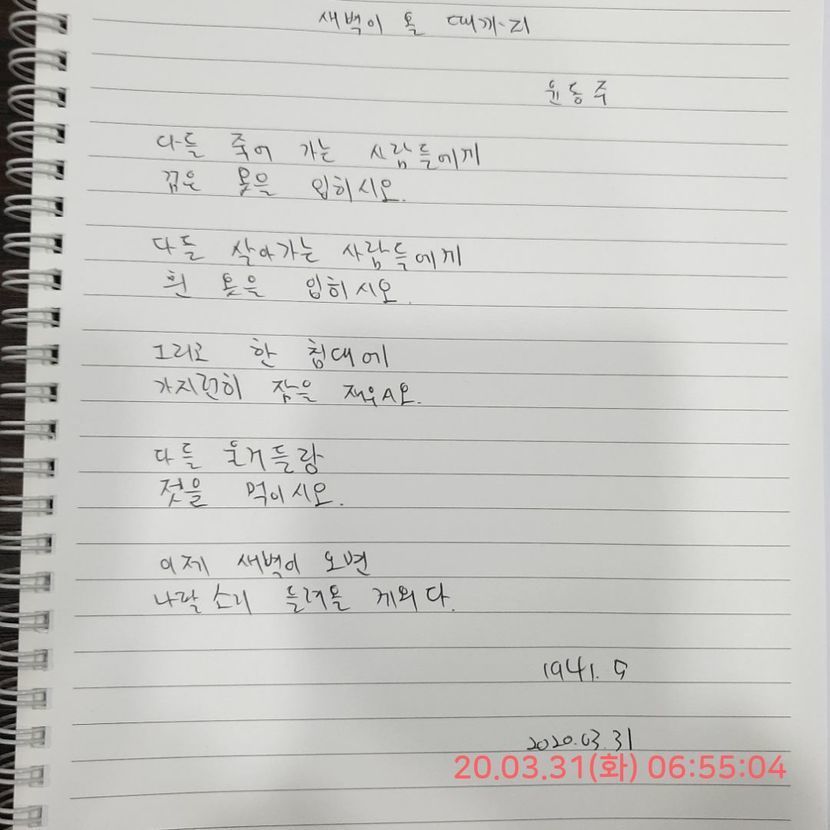 새벽이 올 때까지
윤동주
다들 죽어 가는 사람들에게
검은 옷을 입히시오.
다들 살아가는 사람들에게
흰 옷을 입히시오.
그리고 한 침대에
가지런히 잠을 재우시오.
다들 울거들랑
젖을 먹이시오.
이제 새벽이 오면
나팔소리 들려올 게외다.
1941. 5
2020.03.31
20.03.31(화) 06:55:04